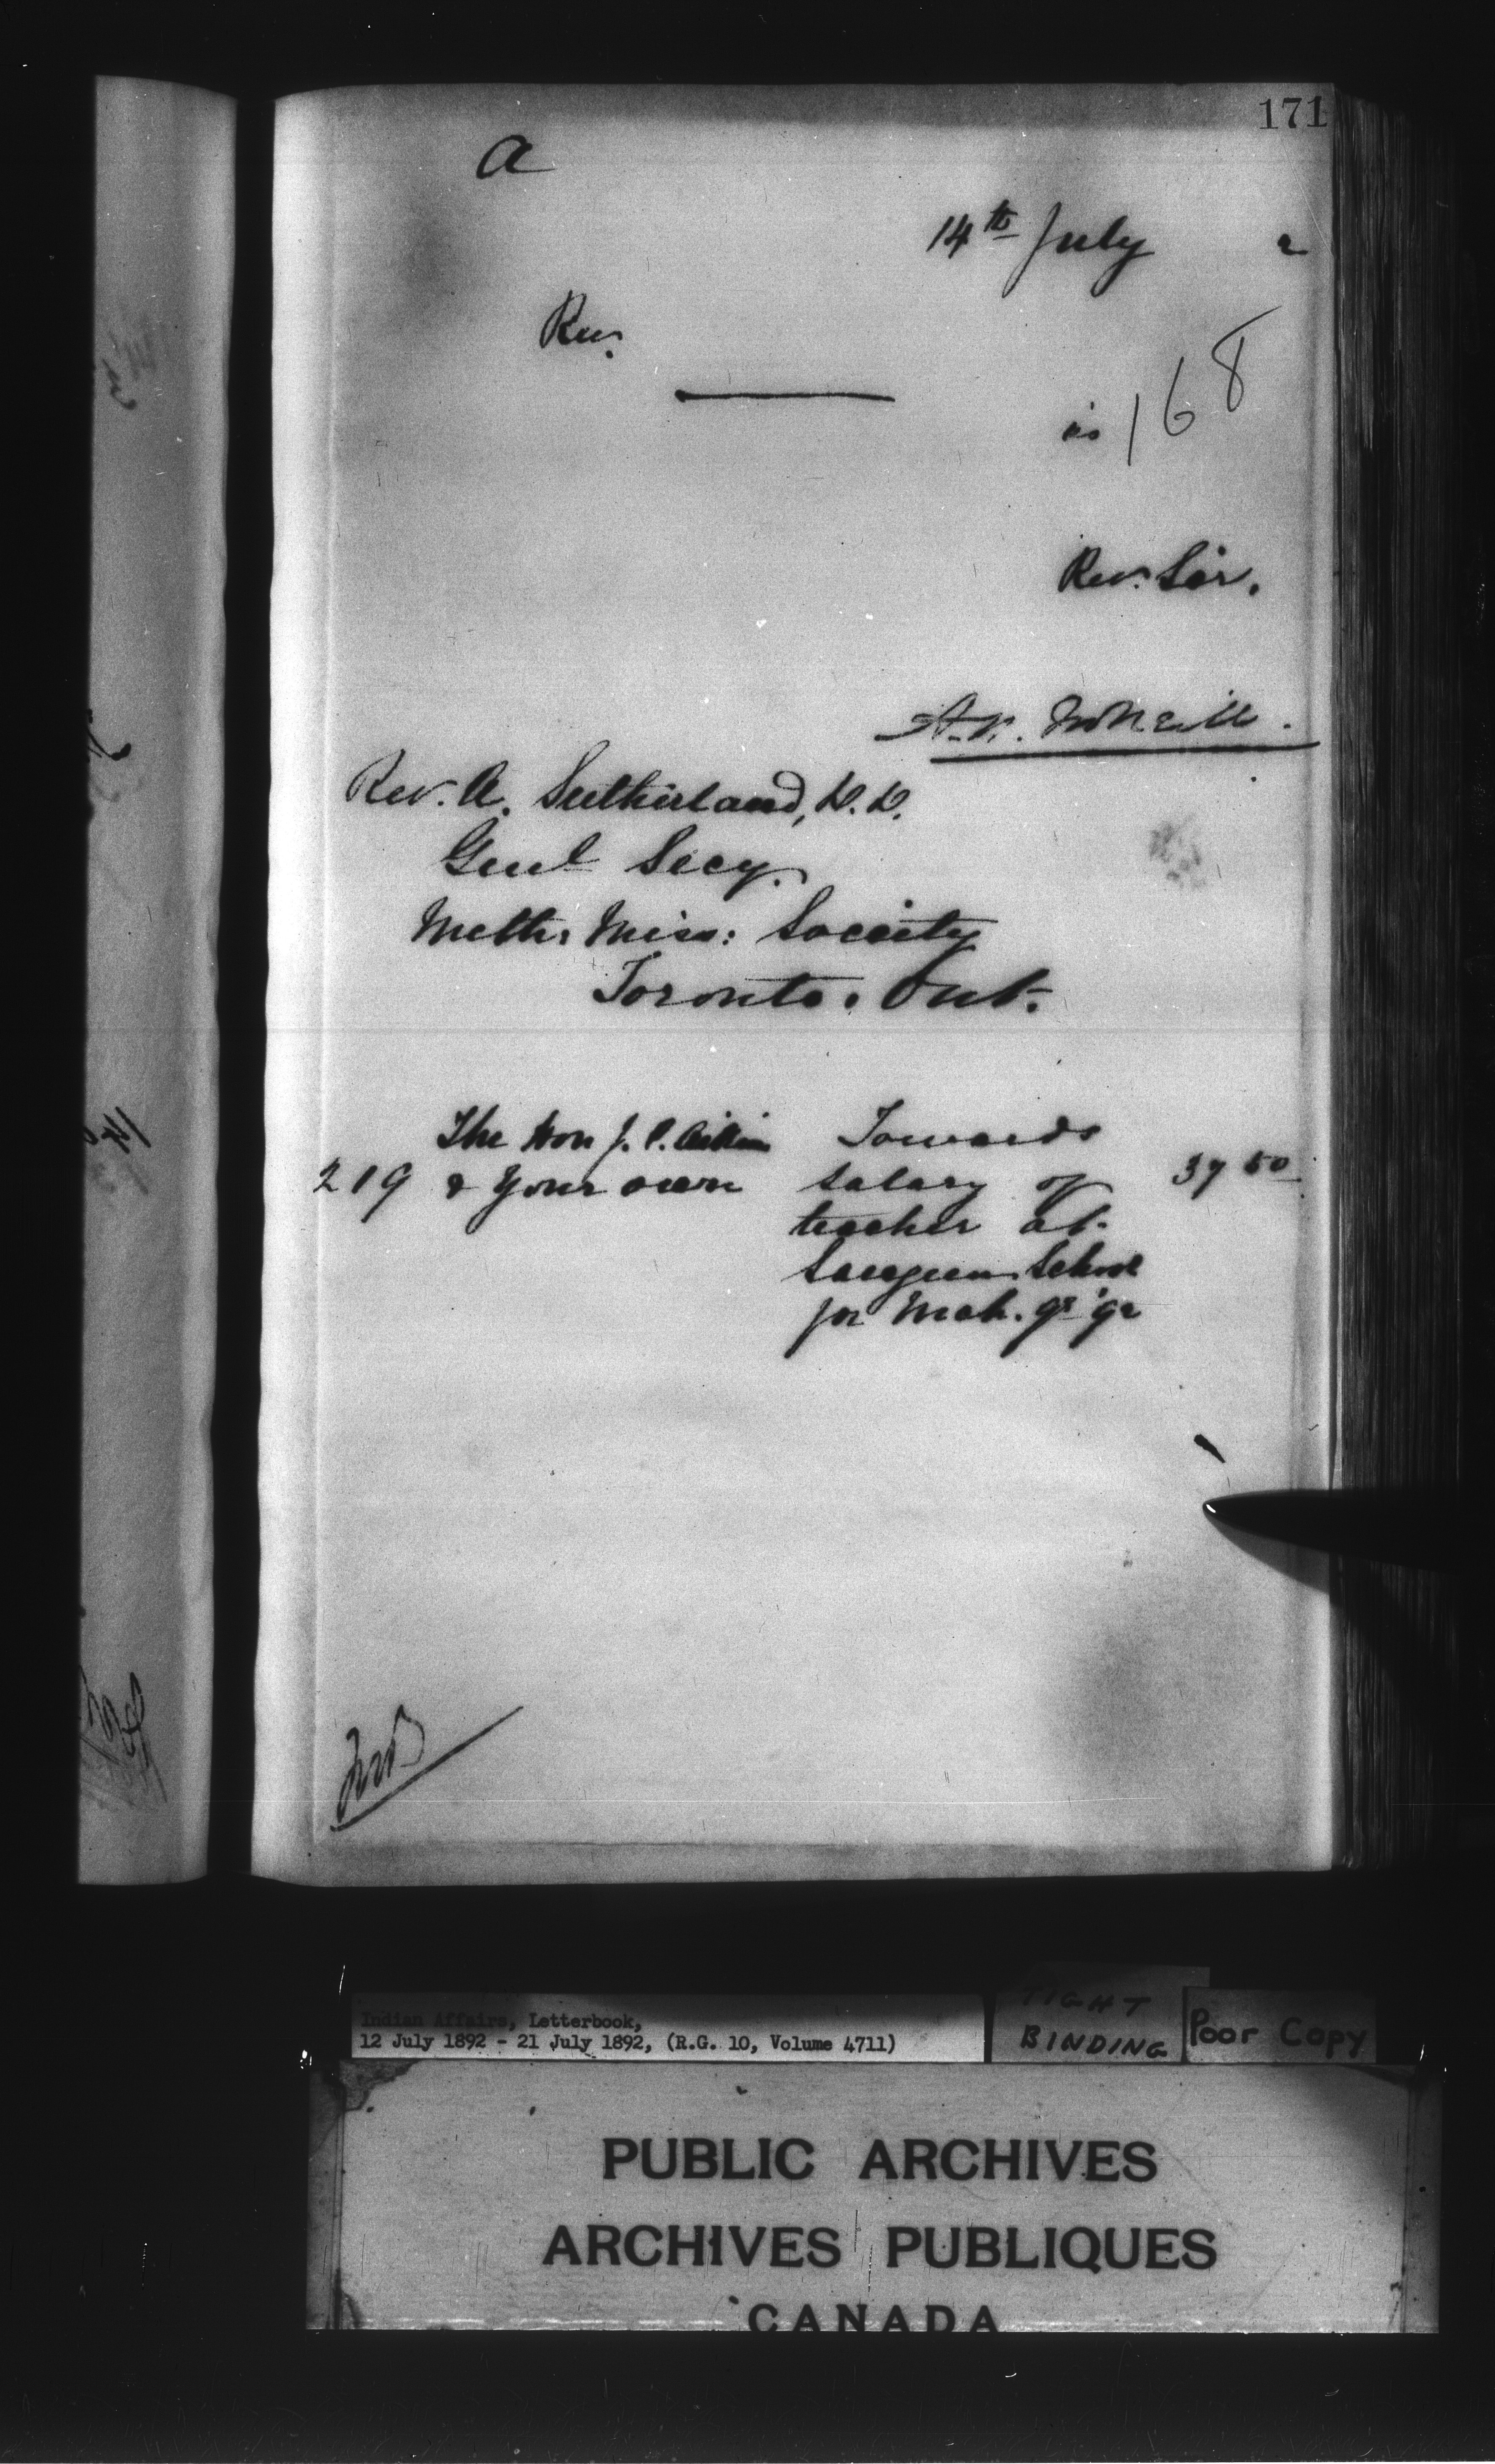 171
a
14th July 2
Rev.
in 168
Rev. Sir,
A.N. McNeill.
Rev. A. Sutherland, D.D.
Genl Secy.
Meth: Miss: Society
Toronto. Ont.
The Hon J. C. Aikins Towards
219 & Your own salary of 37 50
teacher at
Saugeen School
for Mch. qr '92
Indian Affairs, Letterbook,
12 July 1892 - 21 July 1892, (R.G. 10, Volume 4711)
TIGHT
BINDING
Poor Copy
PUBLIC ARCHIVES
ARCHIVES PUBLIQUES
CANADA